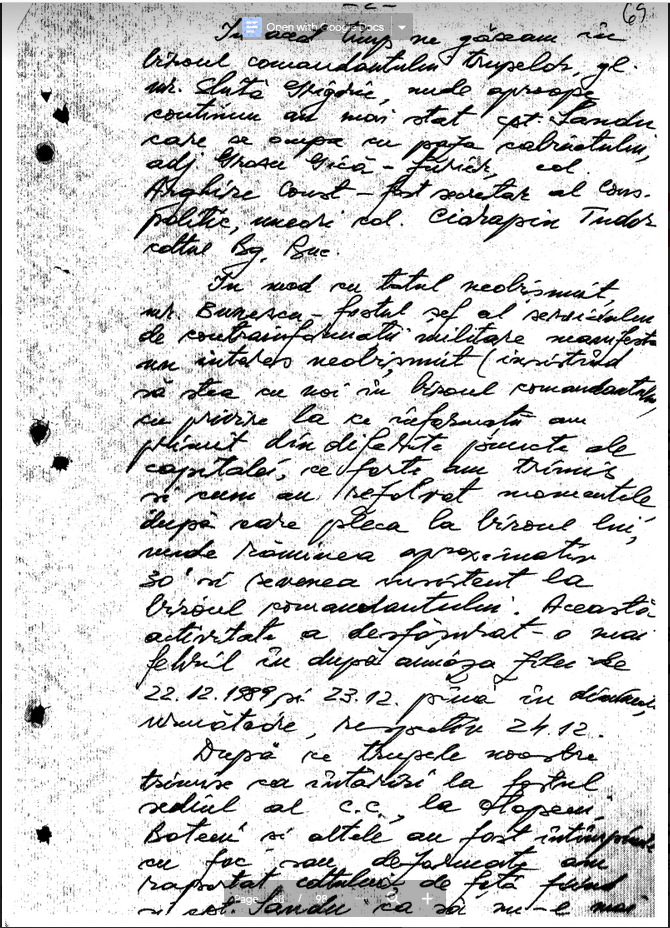 -2-
69
Open with Google Docs
În acest timp ne găseam în
biroul comandantului trupelor, gl.
mr. Ghiță Grigorie, unde aproape
continuu au mai stat cpt. Sandu
care se ocupa cu paza cabinetului,
adj Grosu Gică - furier, col.
Arghire Const - fost secretar al Cons.
politic, uneori col. Ciarapin Tudor
cdtul Bg. Buc.
În mod cu totul neobișnuit,
mr. Bunescu - fostul șef al serviciului
de contrainformații militare manifesta
un interes neobișnuit (insistînd
să stea cu noi în biroul comandantului,
cu privire la ce informații am
primit din diferite puncte ale
capitalei, ce forțe am trimis
și cum au rezolvat momentele
după care pleca la biroul lui,
unde rămînea aproximativ
30' și revenea insistent la
biroul comandantului. Această
activitate a desfășurat-o mai
febril în după amiaza zilei de
22.12.1989 și 23.12. pînă în dimineața
următoare, respectiv 24.12.
După ce trupele noastre
trimise ca întăriri la fostul
sediul al C.C., la Otopeni,
Boteni și altele au fost întîmpinate
cu foc sau dezarmate am
raportat cdtului de față fiind
și cpt. Sandu ca să nu-i mai
Page / 98